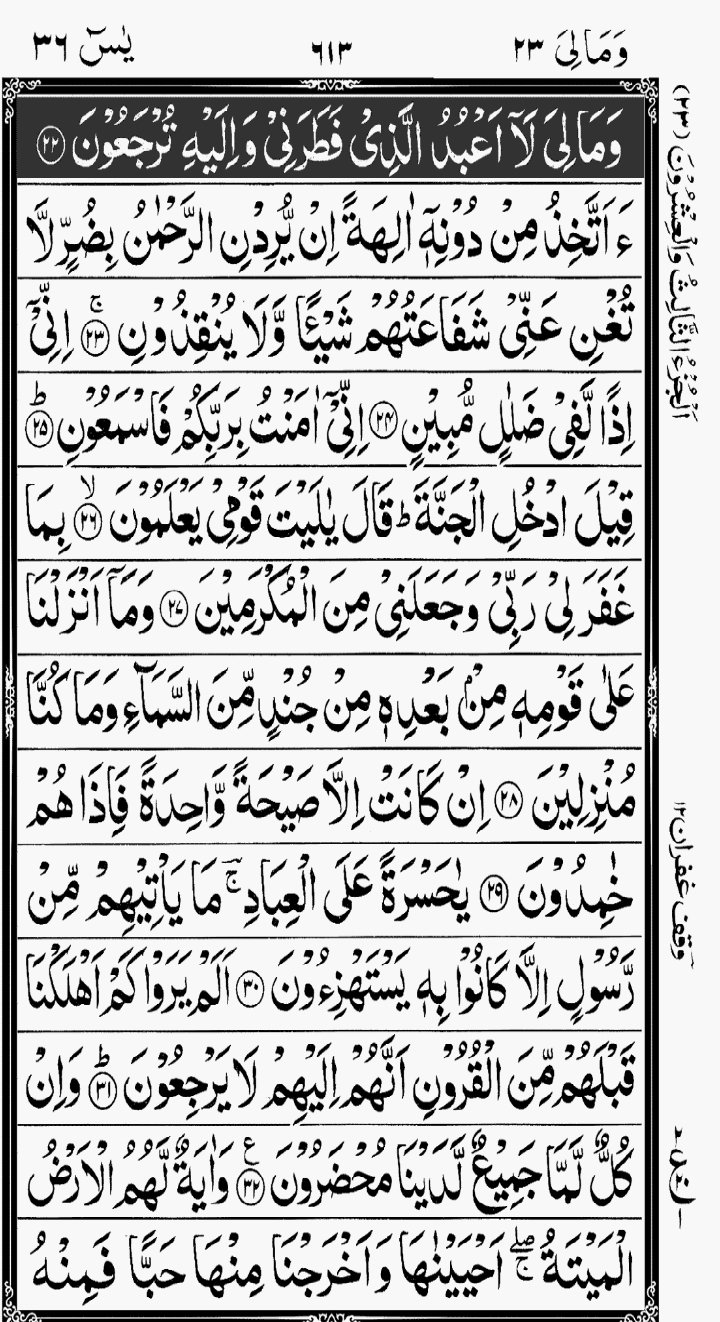 وَمَالِیَ ٢٣ ٦١٣ یٰسٓ ٣٦
وَمَا لِیَ لَاۤ اَعْبُدُ الَّذِیْ فَطَرَنِیْ وَاِلَیْهِ تُرْجَعُوْنَ ﴿۲۲﴾
ءَاَتَّخِذُ مِنْ دُوْنِهٖۤ اٰلِهَةً اِنْ یُّرِدْنِ الرَّحْمٰنُ بِضُرٍّ لَّا
تُغْنِ عَنِّیْ شَفَاعَتُهُمْ شَیْـًٔا وَّلَا یُنْقِذُوْنِ ۚ﴿۲۳﴾ اِنِّیْۤ
اِذًا لَّفِیْ ضَلٰلٍ مُّبِیْنٍ ﴿۲۴﴾ اِنِّیْۤ اٰمَنْتُ بِرَبِّكُمْ فَاسْمَعُوْنِ ؕ﴿۲۵﴾
قِیْلَ ادْخُلِ الْجَنَّةَ ؕ قَالَ یٰلَیْتَ قَوْمِیْ یَعْلَمُوْنَ ۙ﴿۲۶﴾ بِمَا
غَفَرَ لِیْ رَبِّیْ وَجَعَلَنِیْ مِنَ الْمُكْرَمِیْنَ ﴿۲۷﴾ وَمَاۤ اَنْزَلْنَا
عَلٰی قَوْمِهٖ مِنْۢ بَعْدِهٖ مِنْ جُنْدٍ مِّنَ السَّمَآءِ وَمَا كُنَّا
مُنْزِلِیْنَ ﴿۲۸﴾ اِنْ كَانَتْ اِلَّا صَیْحَةً وَّاحِدَةً فَاِذَا هُمْ
خٰمِدُوْنَ ﴿۲۹﴾ یٰحَسْرَةً عَلَی الْعِبَادِ ۚؔ مَا یَاْتِیْهِمْ مِّنْ
رَّسُوْلٍ اِلَّا كَانُوْا بِهٖ یَسْتَهْزِءُوْنَ ﴿۳۰﴾ اَلَمْ یَرَوْا كَمْ اَهْلَكْنَا
قَبْلَهُمْ مِّنَ الْقُرُوْنِ اَنَّهُمْ اِلَیْهِمْ لَا یَرْجِعُوْنَ ؕ﴿۳۱﴾ وَاِنْ
كُلٌّ لَّمَّا جَمِیْعٌ لَّدَیْنَا مُحْضَرُوْنَ ﴿۳۲﴾ ع وَاٰیَةٌ لَّهُمُ الْاَرْضُ
الْمَیْتَةُ ۖۚ اَحْیَیْنٰهَا وَاَخْرَجْنَا مِنْهَا حَبًّا فَمِنْهُ
اَلْجُزْءُ الثَّالِثُ وَالْعِشْرُوْنَ (٢٣)
وقف غفران ١٢